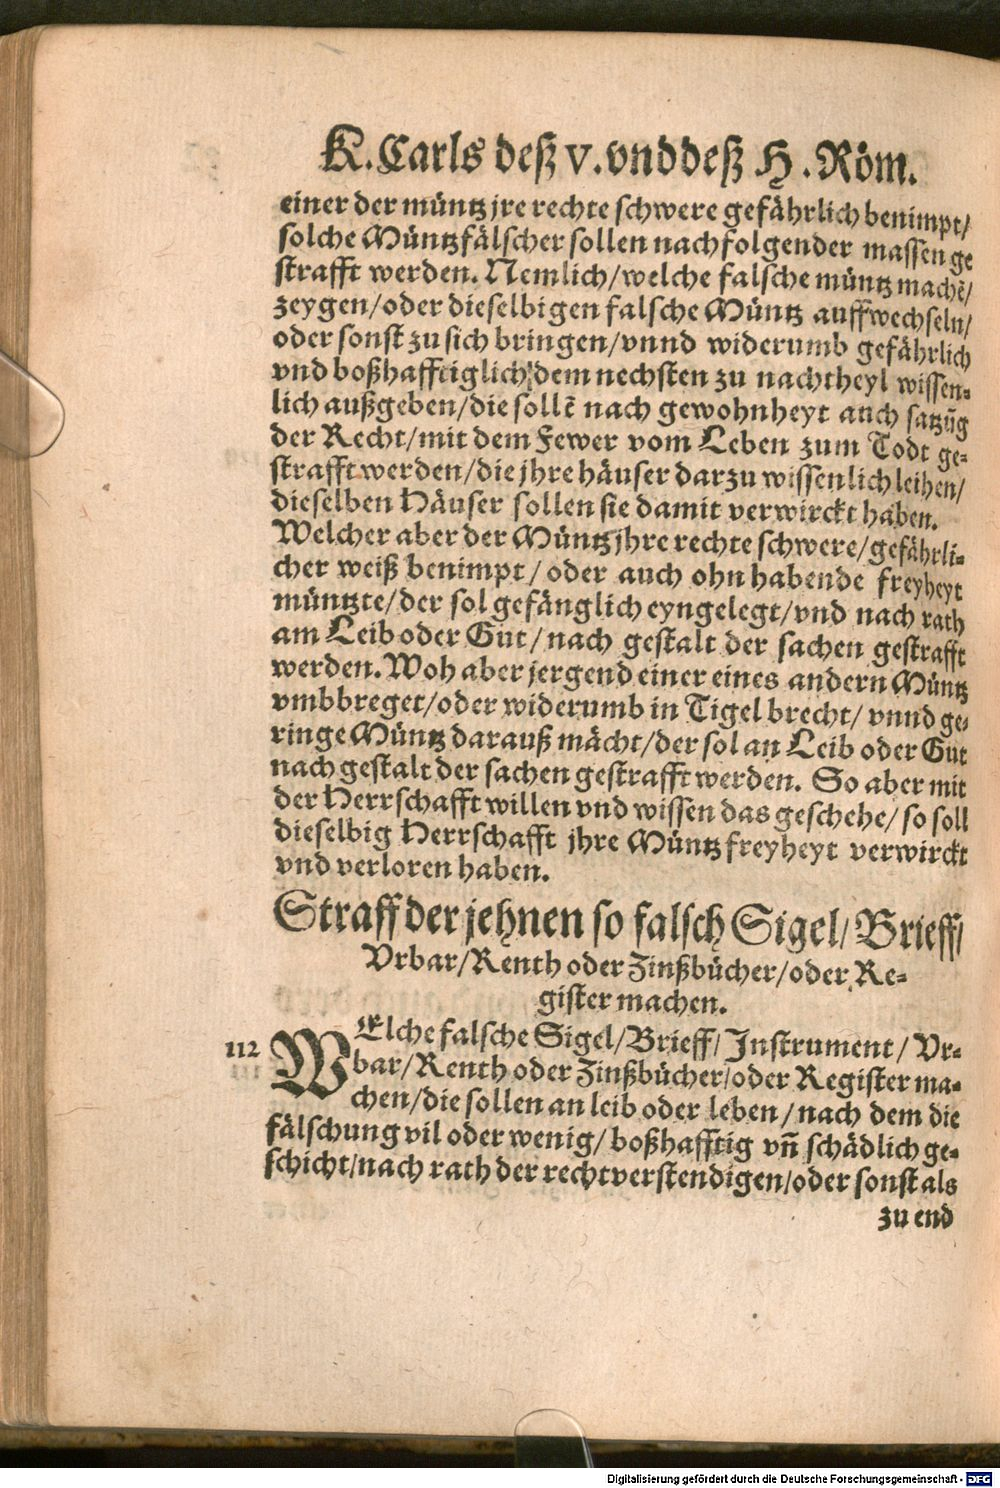 K. Carls deß V. vnd deß H. Röm.
einer der müntz jre rechte schwere gefährlich benimpt/
solche Müntzfälscher sollen nachfolgender massen ge
strafft werden. Nemlich/welche falsche müntz machē/
zeygen/oder dieselbigen falsche Müntz auffwechseln/
oder sonst zu sich bringen/vnnd widerumb gefährlich
vnd boßhafftiglich dem nechsten zu nachtheyl wissen⸗
lich außgeben/die sollē nach gewohnheyt auch satzūg
der Recht/mit dem Fewer vom Leben zum Todt ge⸗
strafft werden/die jhre häuser darzu wissenlich leihen/
dieselben Häuser sollen sie damit verwirckt haben.
Welcher aber der Müntz jhre rechte schwere/gefährli⸗
cher weiß benimpt/oder auch ohn habende freyheyt
müntzte/der sol gefänglich eyngelegt/vnd nach rath
am Leib oder Gut/nach gestalt der sachen gestrafft
werden. Woh aber jergend einer eines andern Müntz
vmbbreget/oder widerumb in Tigel brecht/vnnd ge⸗
ringe Müntz darauß mächt/der sol an Leib oder Gut
nach gestalt der sachen gestrafft werden. So aber mit
der Herrschafft willen vnd wissen das geschehe/so soll
dieselbig Herrschafft jhre Müntzfreyheyt verwirckt
vnd verloren haben.
Straff der jehnen so falsch Sigel/Brieff/
Vrbar/Renth oder Zinßbücher/oder Re⸗
gister machen.
112 WElche falsche Sigel/Brieff/Instrument/Vr⸗
bar/Renth oder Zinßbücher/oder Register ma⸗
chen/die sollen an leib oder leben/nach dem die
fälschung vil oder wenig/boßhafftig vñ schädlich ge⸗
schicht/nach rath der rechtverstendigen/oder sonst als
zu end
Digitalisierung gefördert durch die Deutsche Forschungsgemeinschaft - DFG